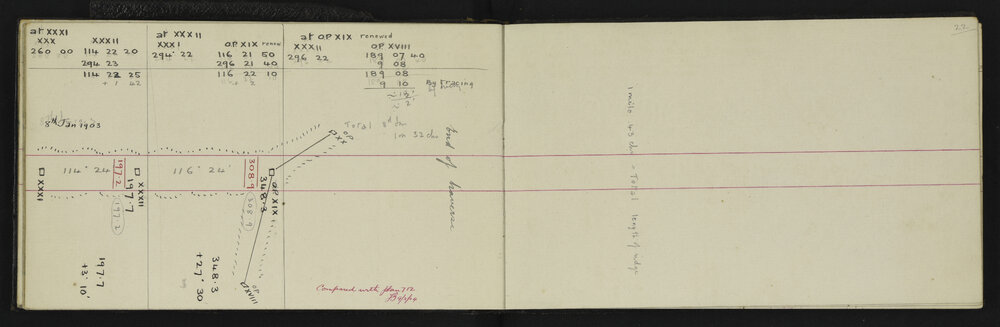 at XXXI
XXX XXXII
260 00 114 22 20
294 23
114 22 25
+1 42
8th Jan 1903
at XXXII
XXXI O.P XIX renew
294° 22 116 21 50
296 21 40
116 22 10
+ 2
at O.P XIX renewed
XXXII O.P XVIII
296 22 189 07 40
9 08
189 08
9 10 By Tracing
12'
2'
Total 8th Jan
1 m 32 chs
O.P XX
End of traverse
XXXI
114° 24
197.2
197.2
XXXII
197.7
116° 24
308.9
308.9
O.P XIX
348.3
197.7
+3° 10'
348.3
+2.7' 30
O.P XVIII
Compared with plan 712
22
1 mile 43 chs - Total length of ridge